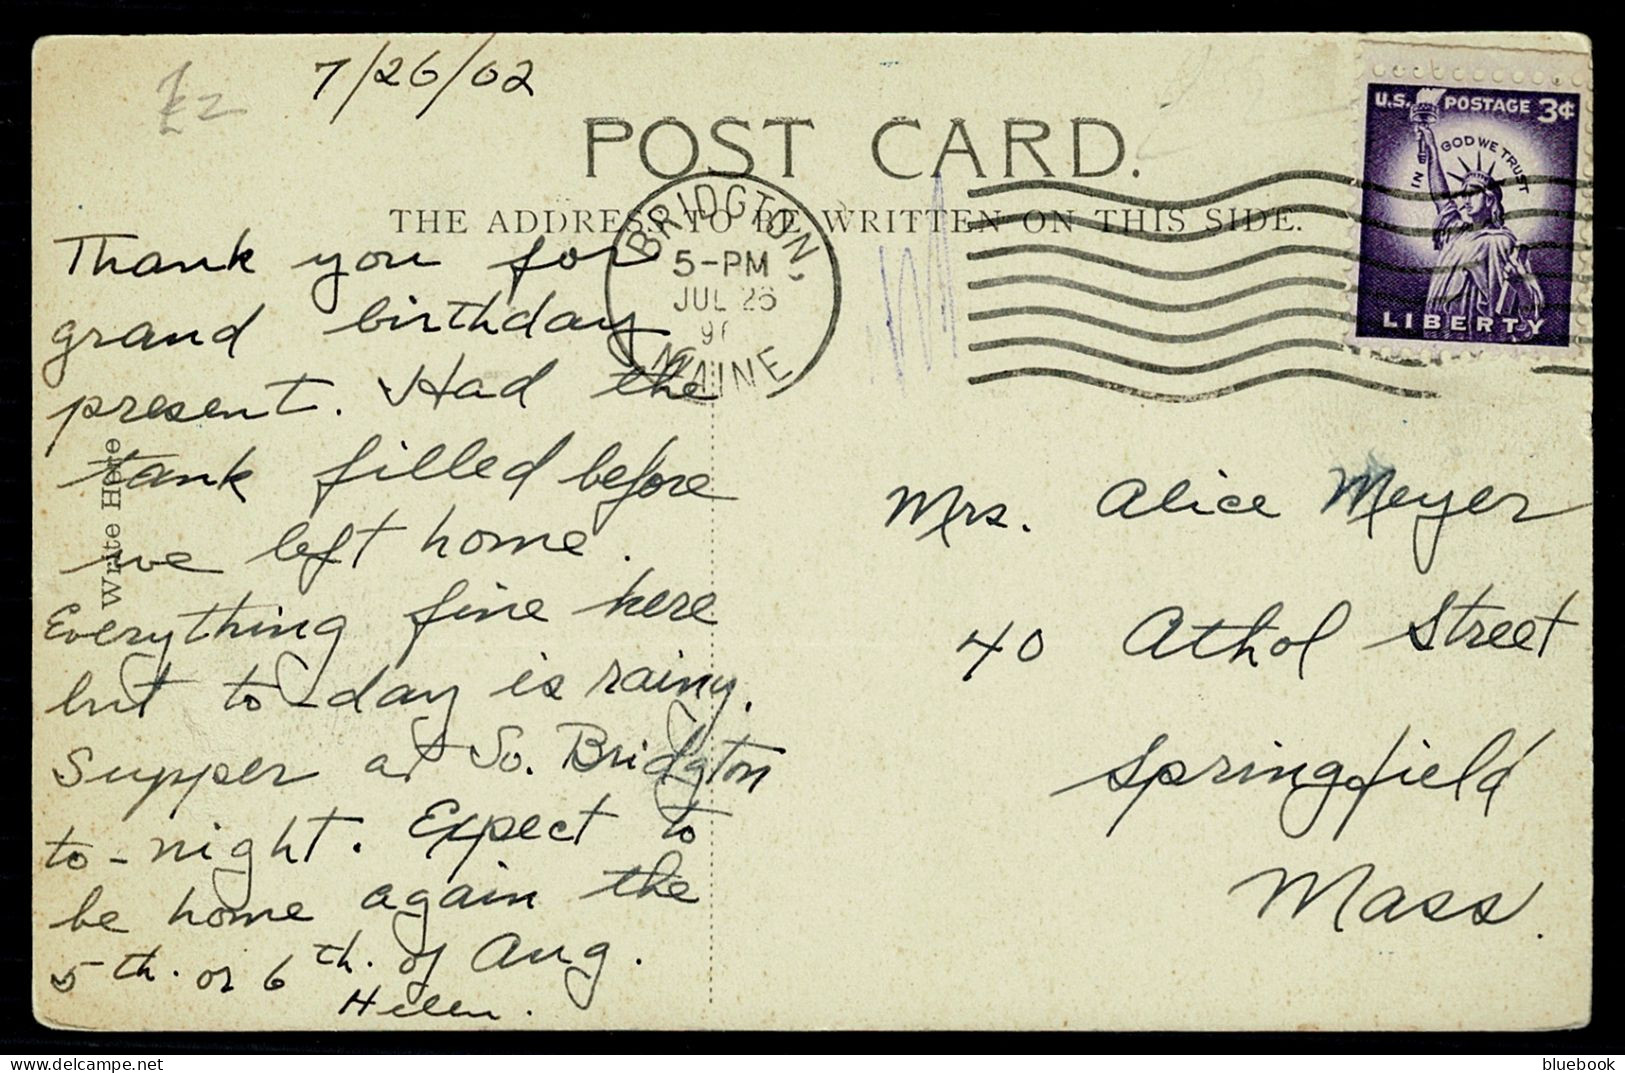 7/26/62
£2
POST CARD.
THE ADDRESS TO BE WRITTEN ON THIS SIDE.
U.S. POSTAGE 3¢
IN GOD WE TRUST
LIBERTY
BRIDGTON,
5-PM
JUL 26
MAINE
Write Here
Thank you for
grand birthday
present. Had the
tank filled before
we left home.
Everything fine here
but to-day is rainy.
Supper at So. Bridgton
to-night. Expect to
be home again the
5th. or 6th. of Aug.
Helen.
Mrs. Alice Meyer
40 Athol Street
Springfield
Mass.
bluebook